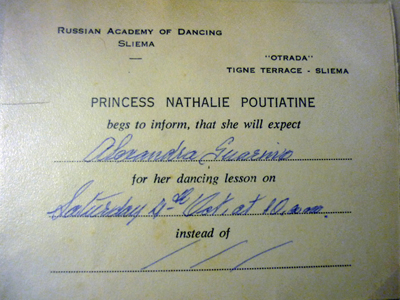 RUSSIAN ACADEMY OF DANCING
SLIEMA
—
"OTRADA"
TIGNE TERRACE - SLIEMA
PRINCESS NATHALIE POUTIATINE
begs to inform, that she will expect
Alexandra
for her dancing lesson on
Saturday 4th Oct. at 10. a.m.
instead of
/ / /